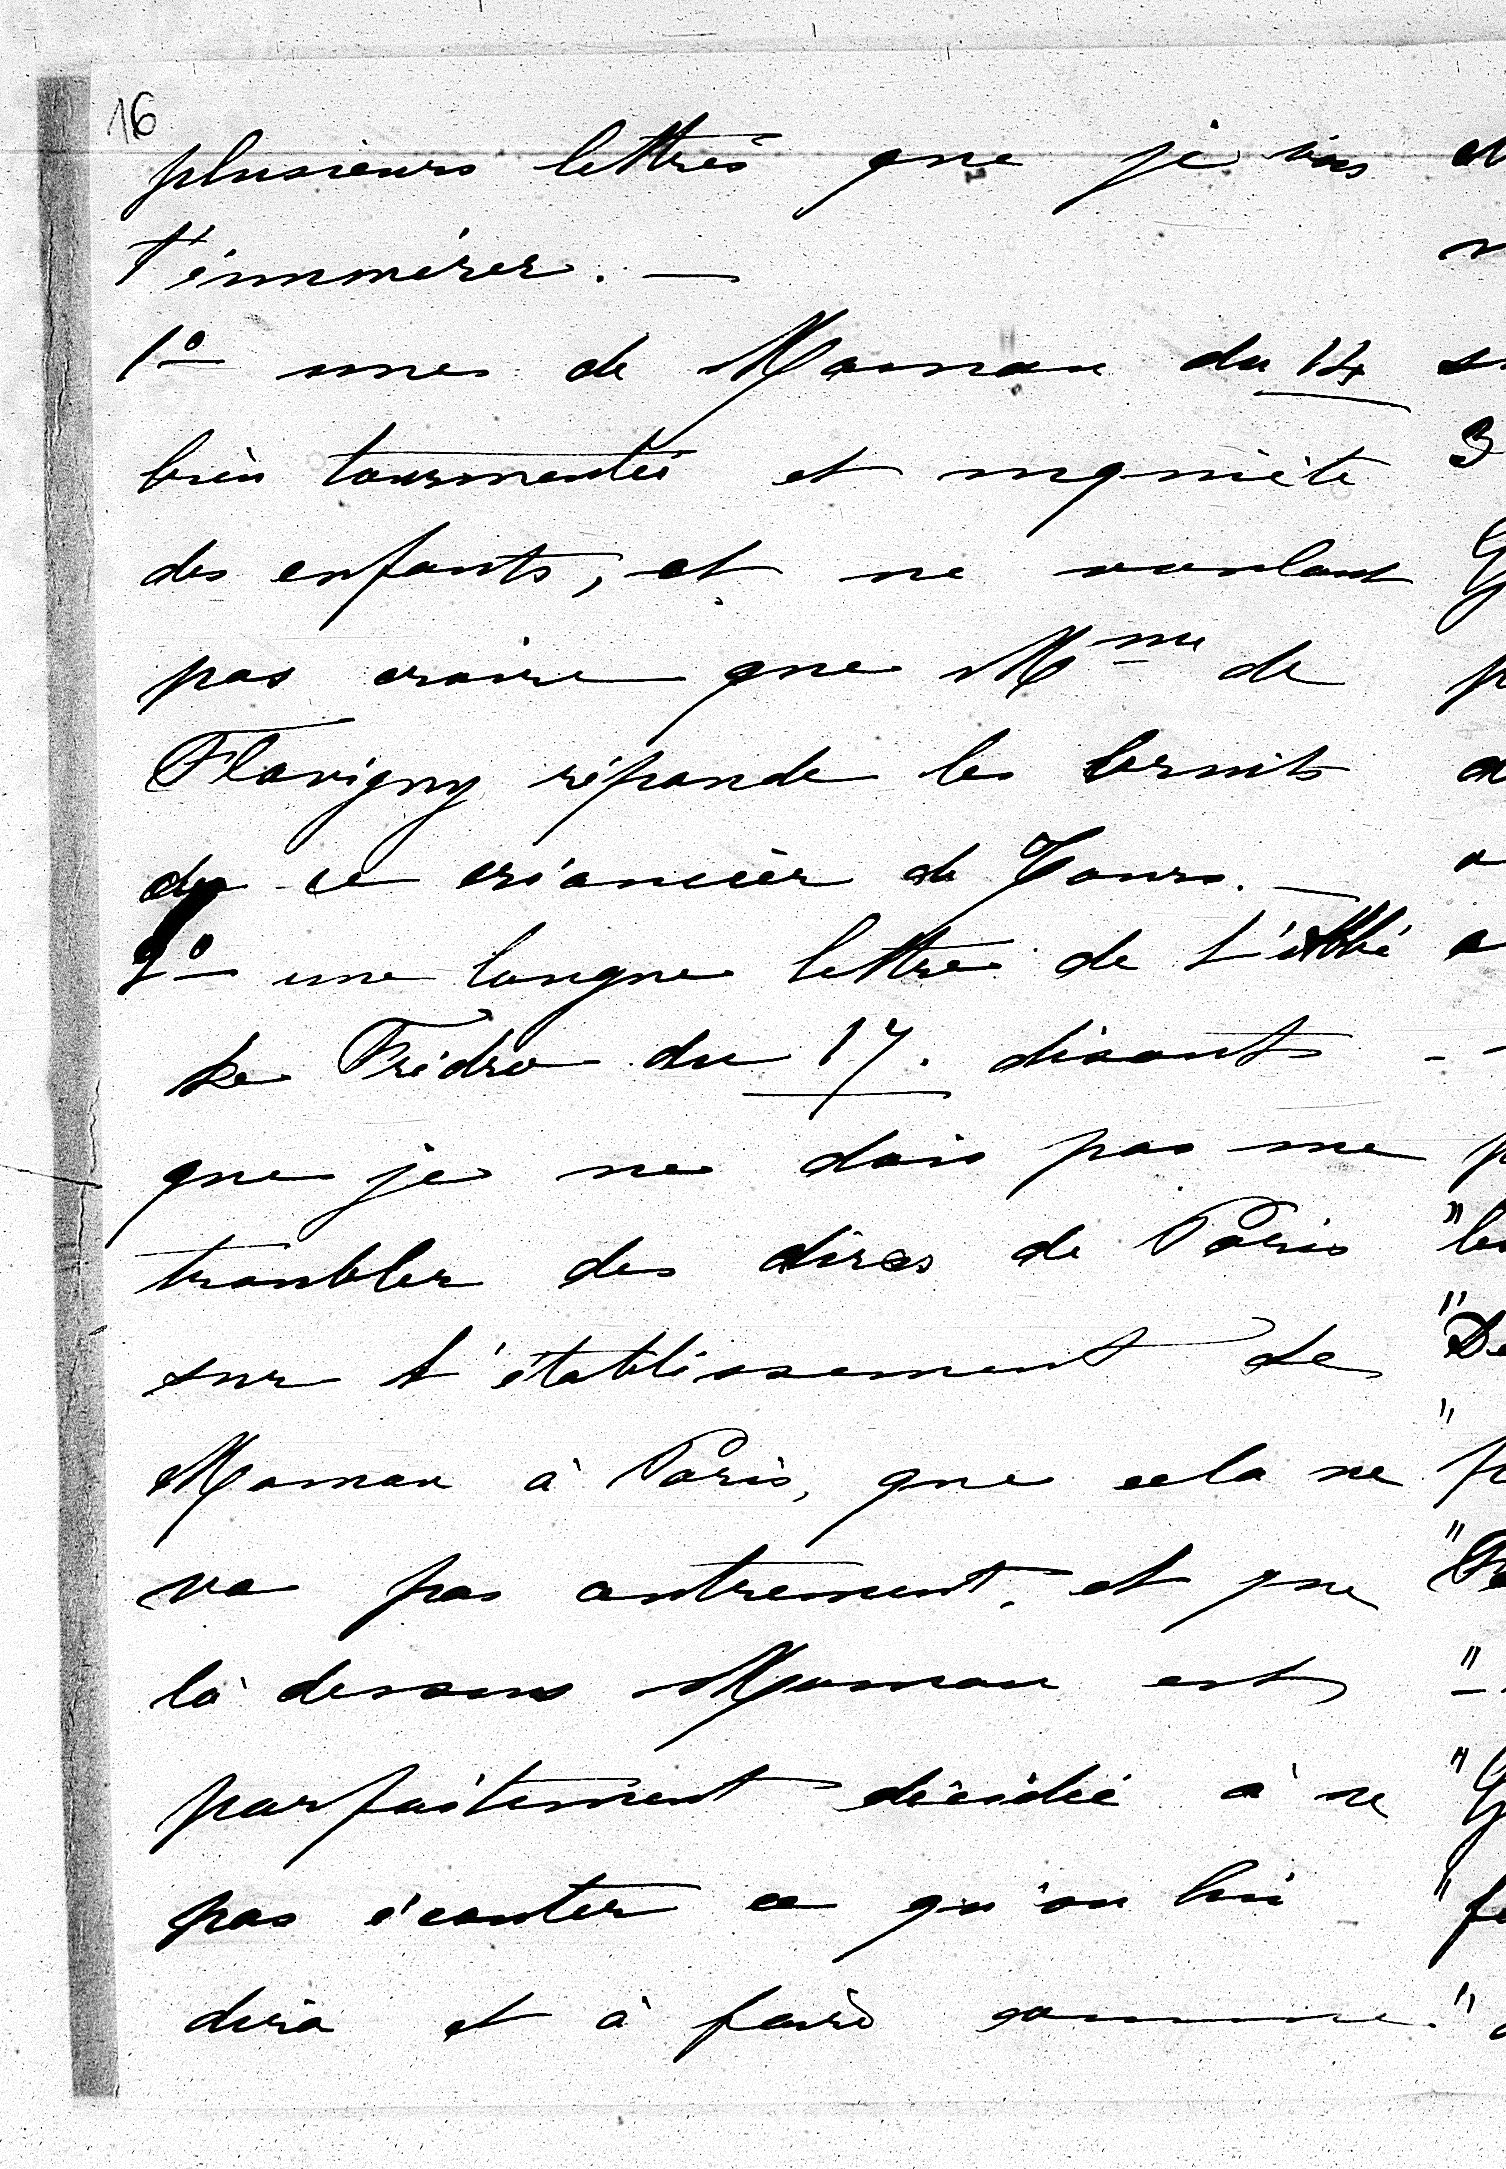 16
plusieurs lettres que je vais
t'énumérer. —
1° une de Maman du 14
bien tourmentée et inquiète
des enfants, et ne voulant
pas croire que Mme de
Flavigny répande les bruits
de ce créancier de Tours. —
2° une longue lettre de l'abbé
du 17. disant
que je ne dois pas me
troubler des dires de Paris
sur l'établissement de
Maman à Paris, que cela ne
va pas autrement, et que
là dessus Maman est
parfaitement décidée à ne
pas écouter ce qu'on lui
dira et à faire comme